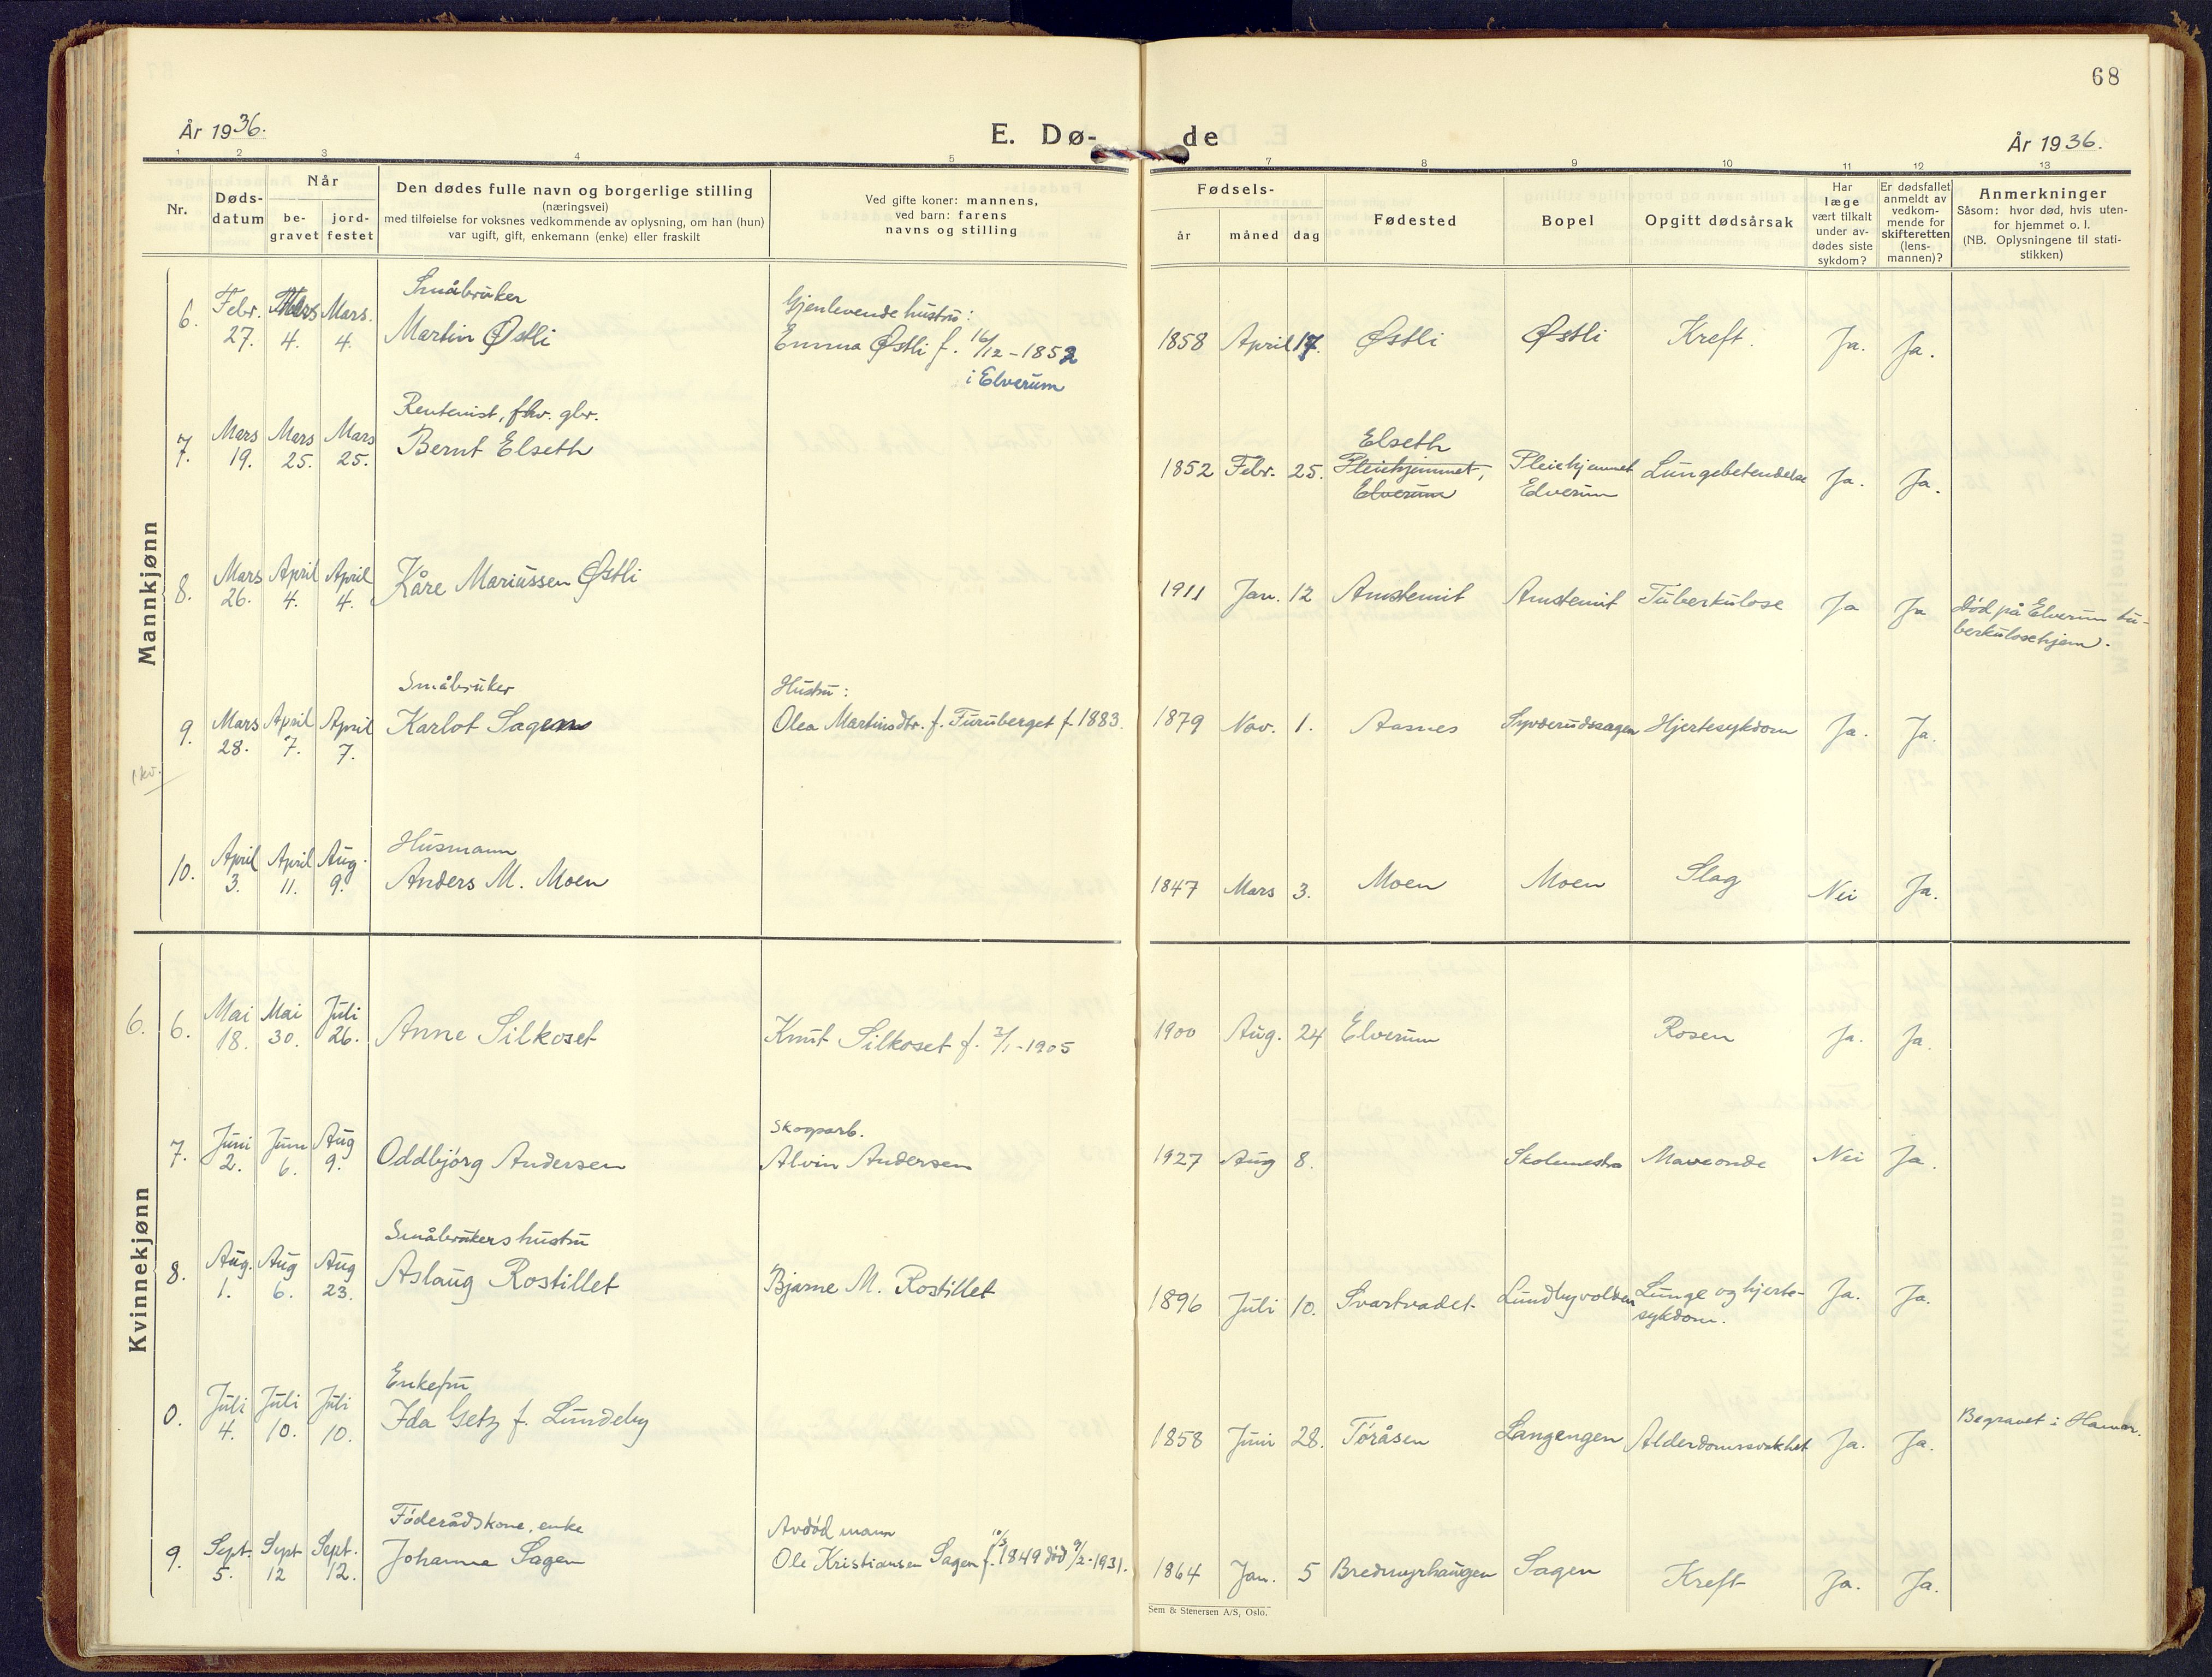 68
År 1936.
E. Dø-
de
År 1936.
1 2 3 4 5 7 8 9 10 11 12 13
Nr.
Døds-
datum
Når
be-
gravet
jord-
festet
Den dødes fulle navn og borgerlige stilling
(næringsvei)
med tilføielse for voksnes vedkommende av oplysning, om han (hun)
var ugift, gift, enkemann (enke) eller fraskilt
Ved gifte koner: mannens,
ved barn: farens
navns og stilling
Fødsels-
år måned dag
Fødested
Bopel
Opgitt dødsårsak
Har
læge
vært tilkalt
under av-
dødes siste
sykdom?
Er dødsfallet
anmeldt av
vedkom-
mende for
skifteretten
(lens-
mannen)?
Anmerkninger
Såsom: hvor død, hvis uten-
for hjemmet o. l.
(NB. Oplysningene til stati-
stikken)
Mannkjønn
Småbruker
6. Febr. 27. Mars 4. Mars. 4. Martin Østli
Gjenlevende hustru:
Emma Østli f. 16/12 - 1852
i Elverum
1858 April 17. Østli Østli Kreft. Ja. Ja.
Rentenist, fhv. gbr.
7. Mars 19. Mars 25. Mars 25. Bernt Elseth
1852 Febr. 25. Elseth
Pleiehjemmet,
Elverum
Pleiehjemmet
Elverum
Lungebetendelse Ja. Ja.
8. Mars 26. April 4. April 4. Kåre Mariussen Østli
1911 Jan. 12 Arnstemit Arnstemit Tuberkulose Ja Ja
Død på Elverum tu-
berkulosehjem.
Småbruker
9. Mars 28. April 7. April 7. Karlot Sagen
Hustru:
Olea Martinsdtr. f. Furuberget f. 1883.
1879 Nov. 1. Aasnes Syverudssagen Hjertesykdom Ja. Ja.
1 kv.
Husmann
10. April 3. April 11. Aug. 9. Anders M. Moen
1847 Mars 3. Moen Moen Slag Nei Ja.
Kvinnekjønn
6. 6. Mai 18. Mai 30. Juli 26. Anne Silkoset
Knut Silkoset f. 3/1 - 1905
1900 Aug. 24 Elverum Rosen Ja. Ja.
7. Juni 2. Juni 6. Aug 9. Oddbjørg Andersen
Skogsarb.
Alvin Andersen
1927 Aug 8. Skolemestra Maveonde Nei Ja.
Småbrukers hustru
8. Aug. 1. Aug 6. Aug 23. Aslaug Rostillet
Bjarne M. Rostillet
1896 Juli 10. Svartvadet. Lundbyvolden Lunge og hjerte-
sykdom. Ja. Ja.
Enkefru
0. Juli 4. Juli 10. Juli 10. Ida Getz f. Lundeby
1858 Juni 28. Tøråsen Langengen Alderdomssvakhet Ja. Ja.
Begravet i Hamar.
Føderådskone, enke
9. Sept. 5. Sept 12 Sept. 12. Johanne Sagen
Avdød mann
Ole Kristiansen Sagen f. 10/3 1849 død 9/2 - 1931.
1864 Jan. 5 Bredmyrhaugen Sagen Kreft Ja. Ja.
Sem & Stenersen A/S, Oslo.